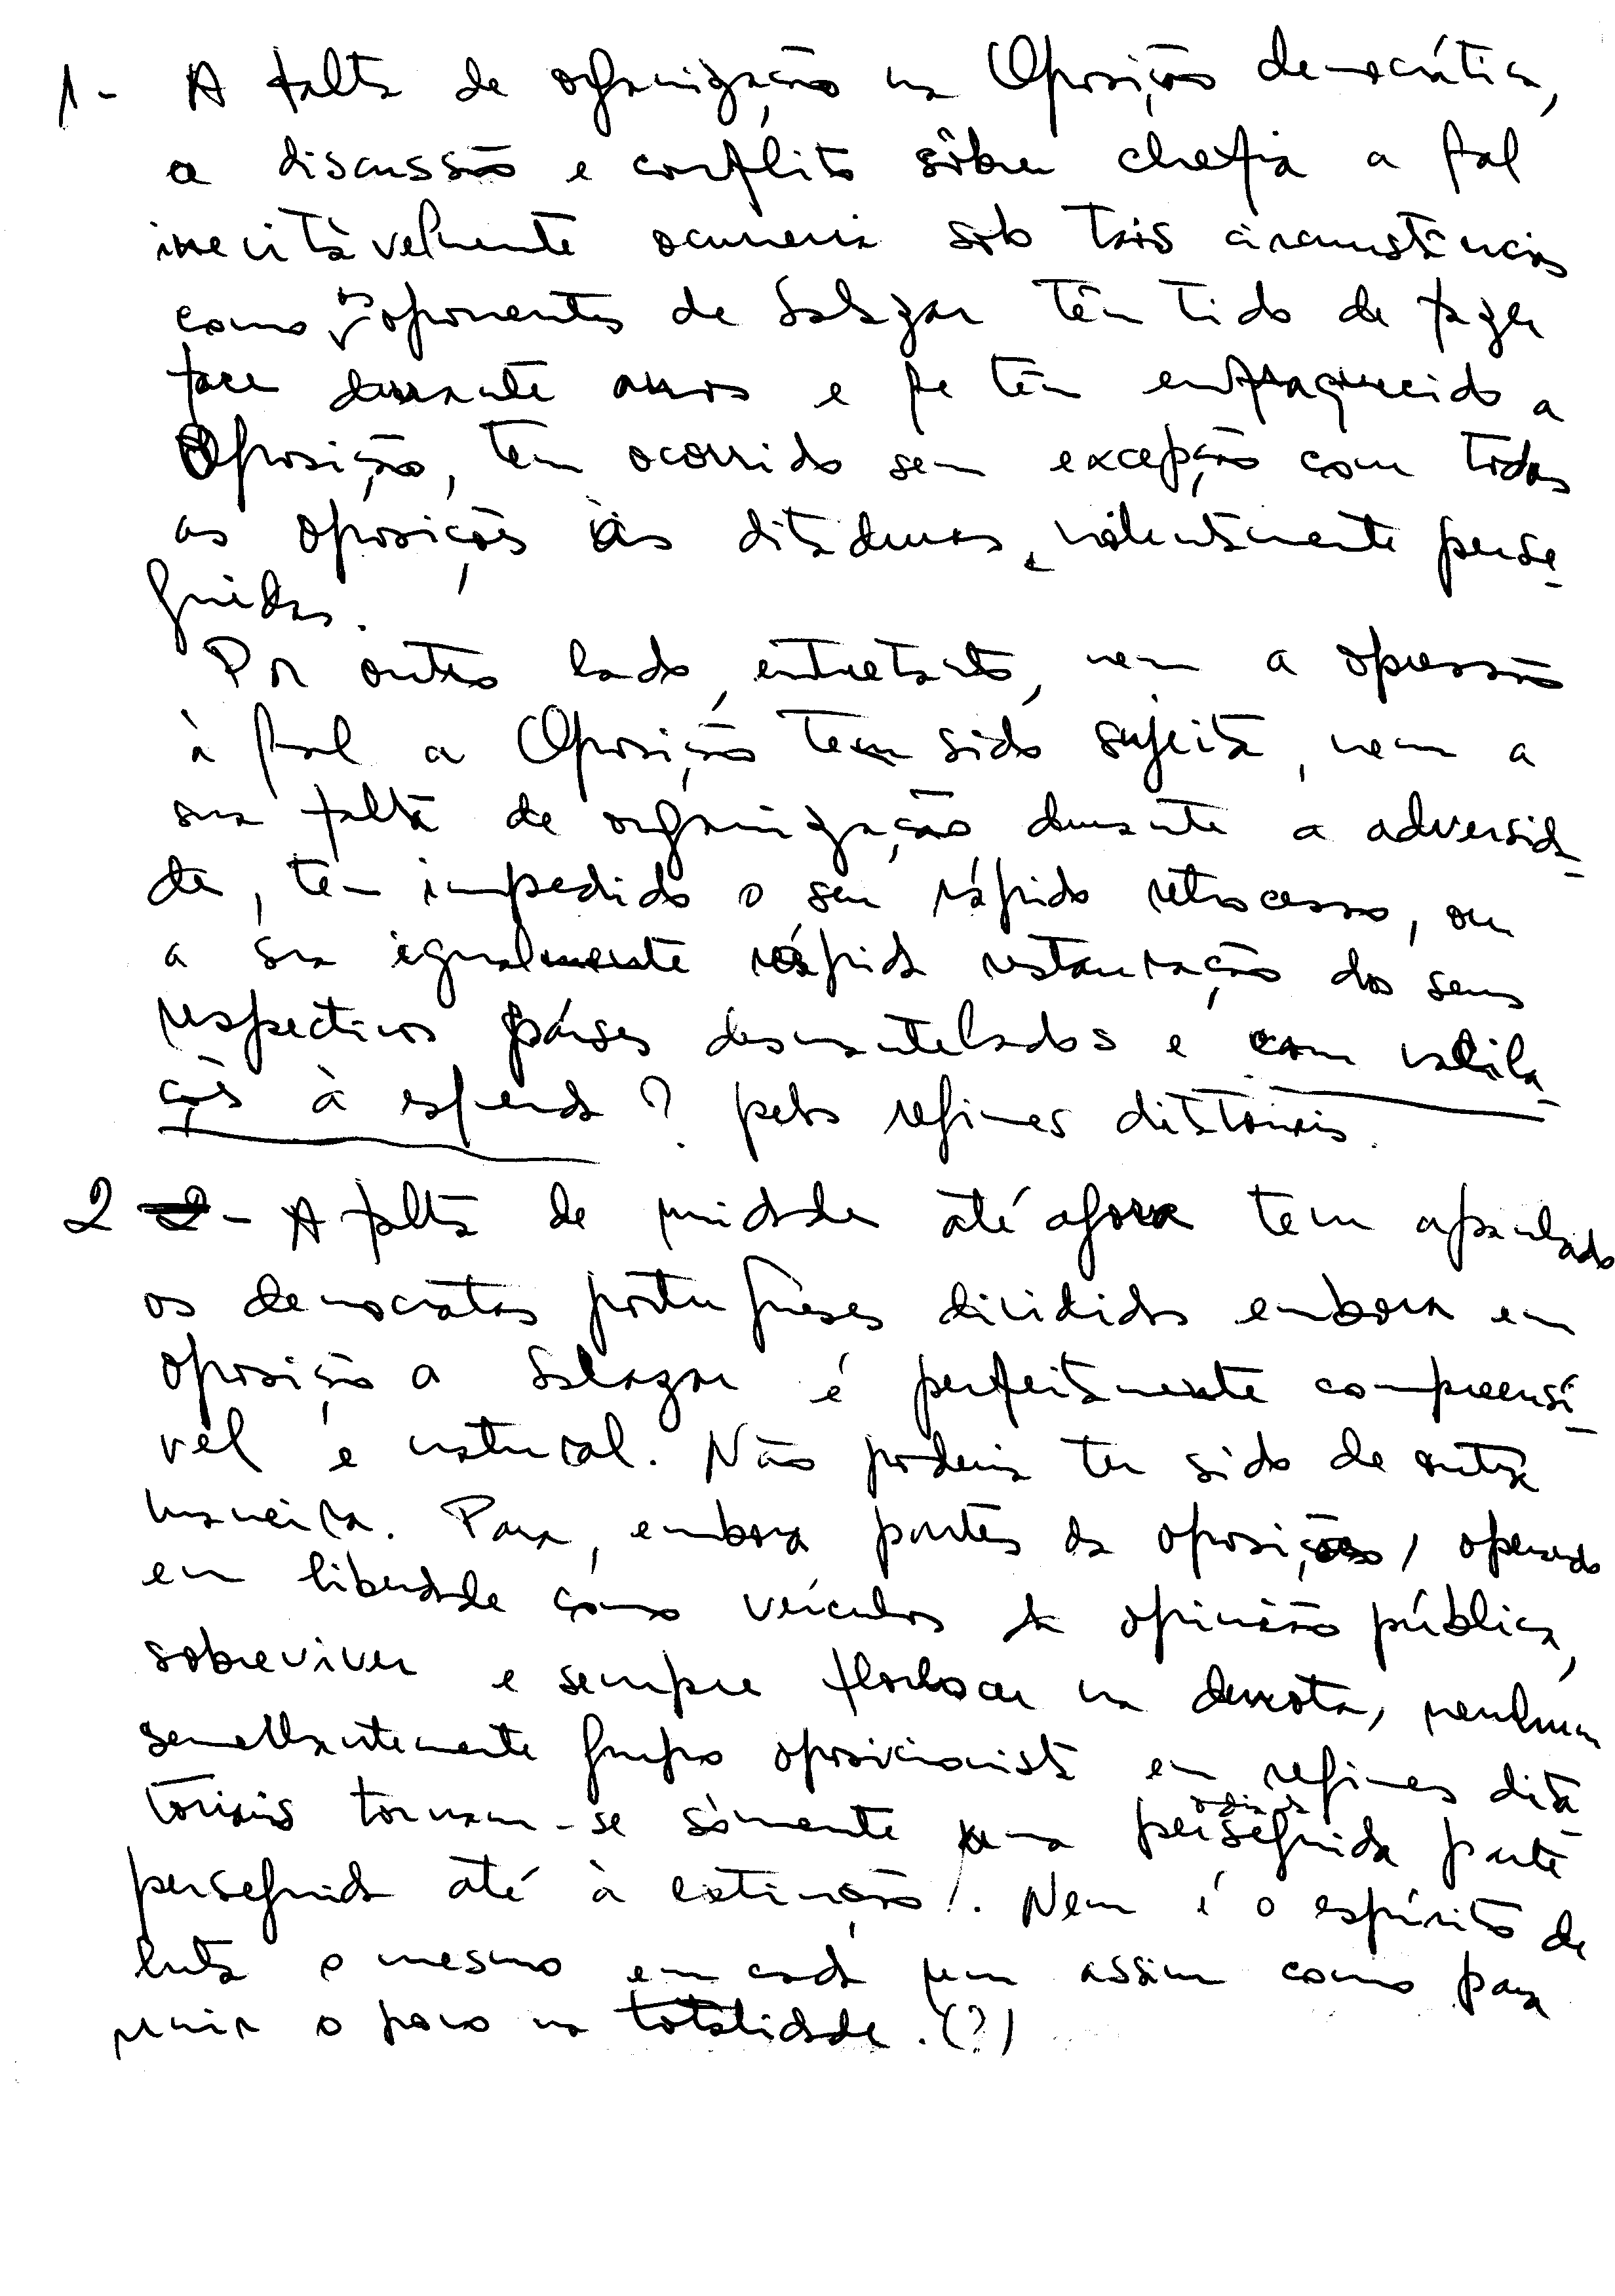 1- A falta de organização na Oposição democrática,
a discussão e conflito sôbre chefia a qual
inevitàvelmente ocorreria sob tais circunstâncias
como os oponentes de Salazar têm tido de fazer
face durante anos e qe têm enfraquecido a
Oposição, tem ocorrido sem excepção com todas
as oposições às ditaduras, violentamente perse-
guidas.
Por outro lado, entretanto, nem a opressão
à qual a Oposição tem sido sujeita, nem a
sua falta de organização durante a adversida-
de, têm impedido o seu rápido retrocesso, ou
a sua igualmente rápida restauração dos seus
respectivos países desmantelados e com
à esquerda? pelos regimes ditatoriais.
2 - A falta de unidade até agora tem
os democratas portugueses divididos embora em
oposição a Salazar é perfeitamente compreensí-
vel e natural. Não poderia ter sido de outra
maneira. Para, embora partes da oposição, operando
em liberdade como veículos da opinião pública,
sobreviver e sempre na derrota, nenhum
semelhantemente grupo oposicionista em regimes dita
toriais tornam-se sòmente uma odiada perseguida parte
perseguida até à extinção!. Nem é o espírito de
luta o mesmo em cada um assim como para
unir o povo na totalidade. (?)